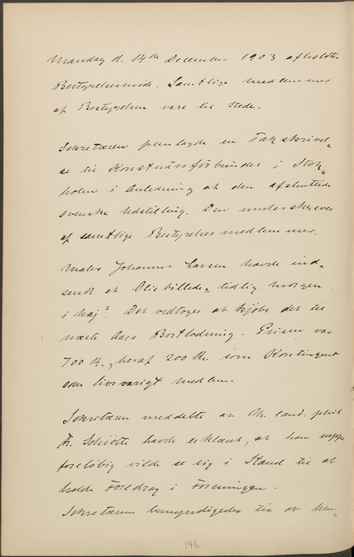 Mandag d. 14de December 1903 afholdtes
Bestyrelsesmøde. Samtlige medlemmer
af Bestyrelsen vare til Stede.
Sekretæren fremlagde en Takskrivel-
se til Konstnärsförbundet i Stok-
holm i Anledning af den afsluttede
svenske Udstilling. Den underskreves
af samtlige Bestyrelsesmedlemmer.
Maler Johannes Larsen havde ind-
sendt et Oliebillede, "tidlig morgen
i Maj". Det vedtoges at tilbyde det til
næste Aars Bortlodning. Prisen var
700 Kr., heraf 200 Kr. som Kontingent
som livsvarigt medlem.
Sekretæren meddelte at Hr. cand. phil
havde erklæret, at han
foreløbig vilde se sig i Stand til at
holde Foredrag i Foreningen.
Sekretæren bemyndigedes til at